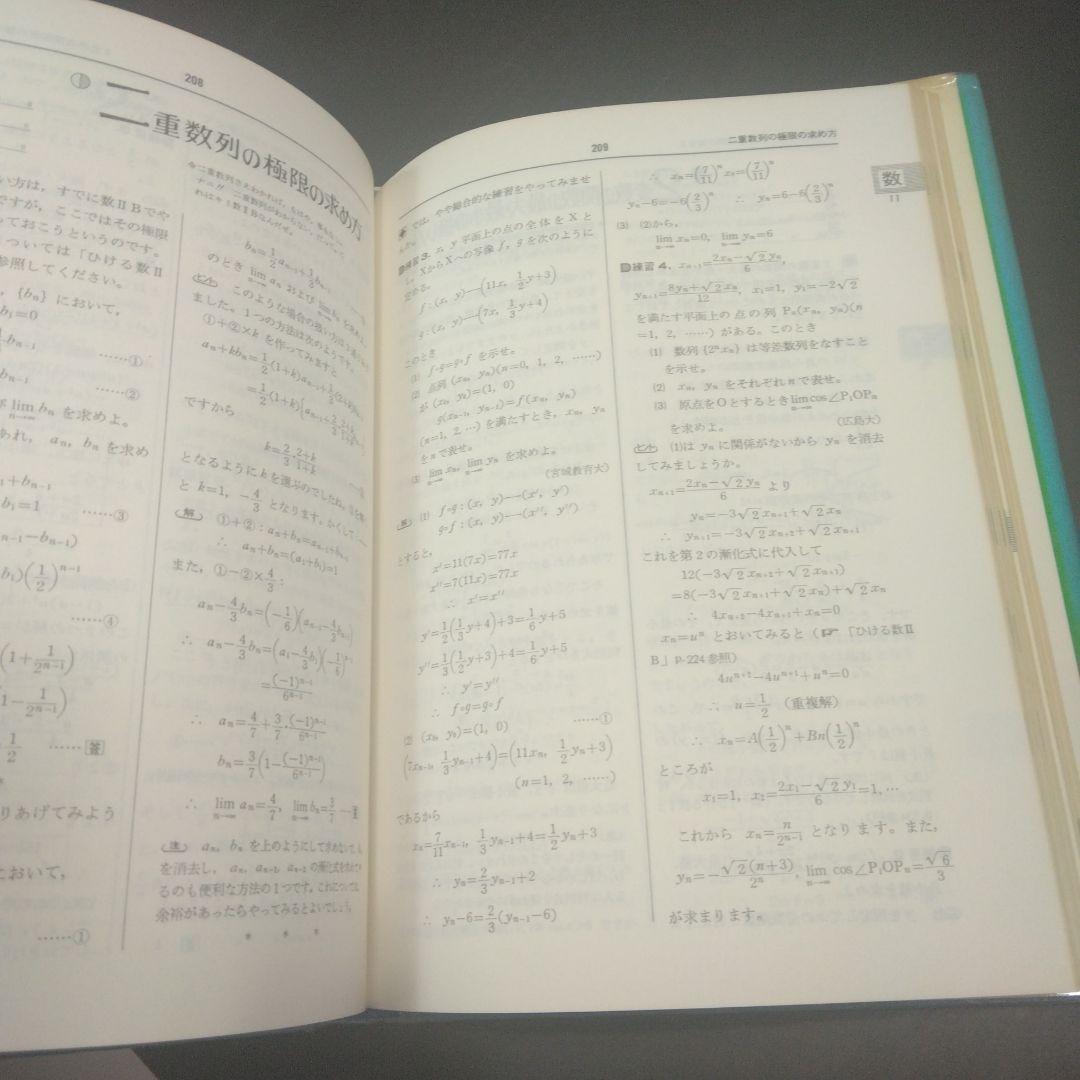 208
二重数列の極限の求め方
い方は、すでに数ⅡBでや
ですが、ここではその極限
っておこうというのです。
については「ひける数Ⅱ
参照してください。
{bn} において,
b₁=0
bn−1 ……①
bn−1 ……②
lim bn を求めよ。
n→∞
あれ, an, bn を求め
+bn−1
b₁=1 ……③
n−1−bn−1)
b₁)(1/2)^{n−1} ……④
(1+1/2^{n−1})
1−1/2^{n−1})
1/2 ……答
りあげてみよう
において,
……①
bn=1/2 an−1+1/3 bn−1
のとき lim an および
ヒント このような場合の扱い方は
ました。1つの方法は次のようです。
①+②×k を作ってみますと
an+kbn=1/2(1+k)an−1+
=1/2(1+k){an−1+
ですから
k=2/3・(2+k)/(1+k)
となるように k を選ぶのでしたね。
と k=1, −4/3 となります。かくして
解 ①+②:an+bn=an−1+bn−1
∴ an+bn=(a₁+b₁)=1
また, ①−②×4/3:
an−4/3 bn=(−1/6)(an−1−4/3 bn−1)
∴ an−4/3 bn=(a₁−4/3 b₁)(−1/6)^{n−1}
=(−1)^{n−1}/6^{n−1}
∴ an=4/7+3/7・(−1)^{n−1}/6^{n−1}
bn=3/7(1−(−1)^{n−1}/6^{n−1})
∴ lim an=4/7, lim bn=3/7
n→∞ n→∞
注 an, bn を上のようにして求めないで,
を消去し, an, an−1, an−2 の漸化式を
るのも便利な方法の1つです。これについては
余裕があったらやってみるとよいでしょう。
* * *
209
二重数列の極限の求め方
数
II
では, やや総合的な練習をやってみませ
練習3. x, y 平面上の点の全体を X と
X から X への写像 f, g を次のように
定める。
f:(x, y)→(11x, 1/2 y+3)
g:(x, y)→(7x, 1/3 y+4)
このとき
(1) f∘g=g∘f を示せ。
(2) 点列 (xn, yn)(n=0, 1, 2, ……)
が (x₀, y₀)=(1, 0)
g(xn−1, yn−1)=f(xn, yn)
(n=1, 2, …) を満たすとき, xn, yn
を n で表せ。
(3) lim xn, lim yn を求めよ。
n→∞ n→∞
(宮城教育大)
解 (1) f∘g:(x, y)→(x′, y′)
g∘f:(x, y)→(x″, y″)
とすると,
x′=11(7x)=77x
x″=7(11x)=77x
∴ x′=x″
y′=1/2(1/3 y+4)+3=1/6 y+5
y″=1/3(1/2 y+3)+4=1/6 y+5
∴ y′=y″
∴ f∘g=g∘f
(2) (x₀, y₀)=(1, 0) ……①
(7xn−1, 1/3 yn−1+4)=(11xn, 1/2 yn+3)
(n=1, 2, ……)
であるから
xn=7/11 xn−1, 1/3 yn−1+4=1/2 yn+3
∴ yn=2/3 yn−1+2
∴ yn−6=2/3(yn−1−6)
∴ xn=(7/11)^n x₀=(7/11)^n
yn−6=−6(2/3)^n ∴ yn=6−6(2/3)^n
(3) (2)から,
lim xn=0, lim yn=6
n→∞ n→∞
練習4. xn+1=(2xn−√2 yn)/6,
yn+1=(8yn+√2 xn)/12, x₁=1, y₁=−2√2
を満たす平面上の点の列 Pn(xn, yn)(n
=1, 2, ……) がある。このとき
(1) 数列 {2ⁿxn} は等差数列をなすこと
を示せ。
(2) xn, yn をそれぞれ n で表せ。
(3) 原点を O とするとき lim cos∠P₁OPn
n→∞
を求めよ。 (広島大)
ヒント (1)は yn に関係がないから yn を消去
してみましょうか。
xn+1=(2xn−√2 yn)/6 より
yn=−3√2 xn+1+√2 xn
∴ yn+1=−3√2 xn+2+√2 xn+1
これを第2の漸化式に代入して
12(−3√2 xn+2+√2 xn+1)
=8(−3√2 xn+1+√2 xn)+√2 xn
∴ 4xn+2−4xn+1+xn=0
xn=uⁿ とおいてみると (☞ 「ひける数Ⅱ
B」p.224参照)
4u^{n+2}−4u^{n+1}+u^n=0
∴ u=1/2 (重複解)
∴ xn=A(1/2)^n+Bn(1/2)^n
ところが
x₁=1, x₂=(2x₁−√2 y₁)/6=1, …
これから xn=n/2^{n−1} となります。また,
yn=−√2(n+3)/2^n, lim cos∠P₁OPn=√6/3
n→∞
が求まります。